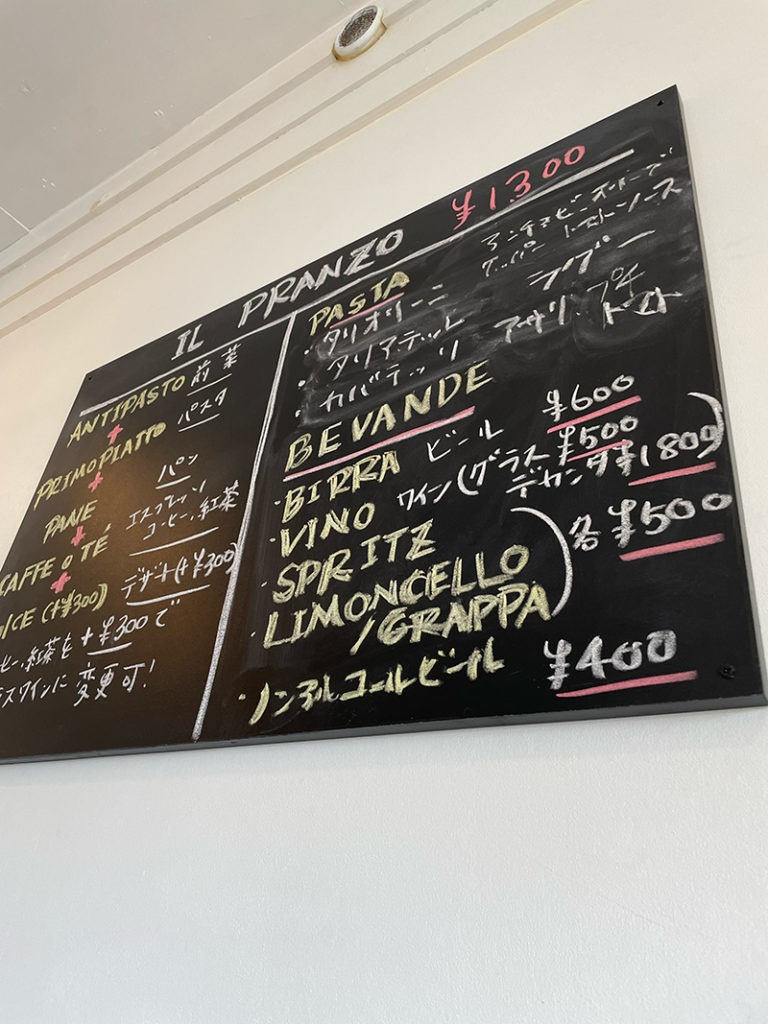 IL PRANZO ¥1300
ANTIPASTO 前菜
+
PRIMO PIATTO パスタ
+
PANE パン
+
CAFFE O TÉ エスプレッソ
コーヒー、紅茶
+
ICE (+¥300) デザート(+¥300)
ヒー、紅茶を+¥300で
スワインに変更可!
PASTA
・タリオリーニ アンチョビ、オリーブ
ケッパー トマトソース
・タリアテッレ ラグー
・カバテッリ アサリ、プチ
トマト
BEVANDE
・BIRRA ビール ¥600
・VINO ワイン(グラス ¥500
デカンタ¥1800)
・SPRITZ
・LIMONCELLO
/GRAPPA) 各¥500
・ノンアルコールビール ¥400